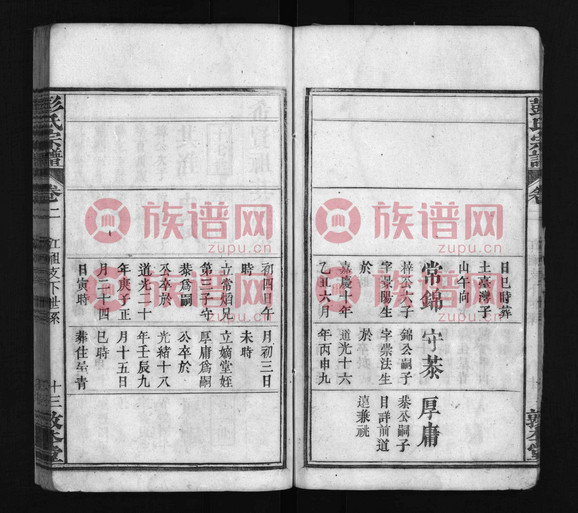 彭氏宗譜
卷
敦夲堂
日巳時葬
土臺灣子
山午向
常錦
梓公六子
字菉陽生
於
嘉慶十年
乙丑六月
守菾
錦公嗣子
字崇法生
於
道光十六
年丙申九
厚庸
菾公嗣子
目詳前道
逵兼祧
初四日午
時
立常焔兄
第三子守
菾爲嗣
公卒於
道光二十
年庚子正
月二十四
日寅時
月初三日
未時
立嫡堂姪
厚庸爲嗣
公卒於
光緒十八
年壬辰九
月十五日
巳時
葬住屋青
彭氏宗譜
卷二
江祖支下世系
十三
敦夲堂
族谱网
zupu.cn
族谱网
zupu.cn
族谱网
zupu.cn
族谱网
zupu.cn